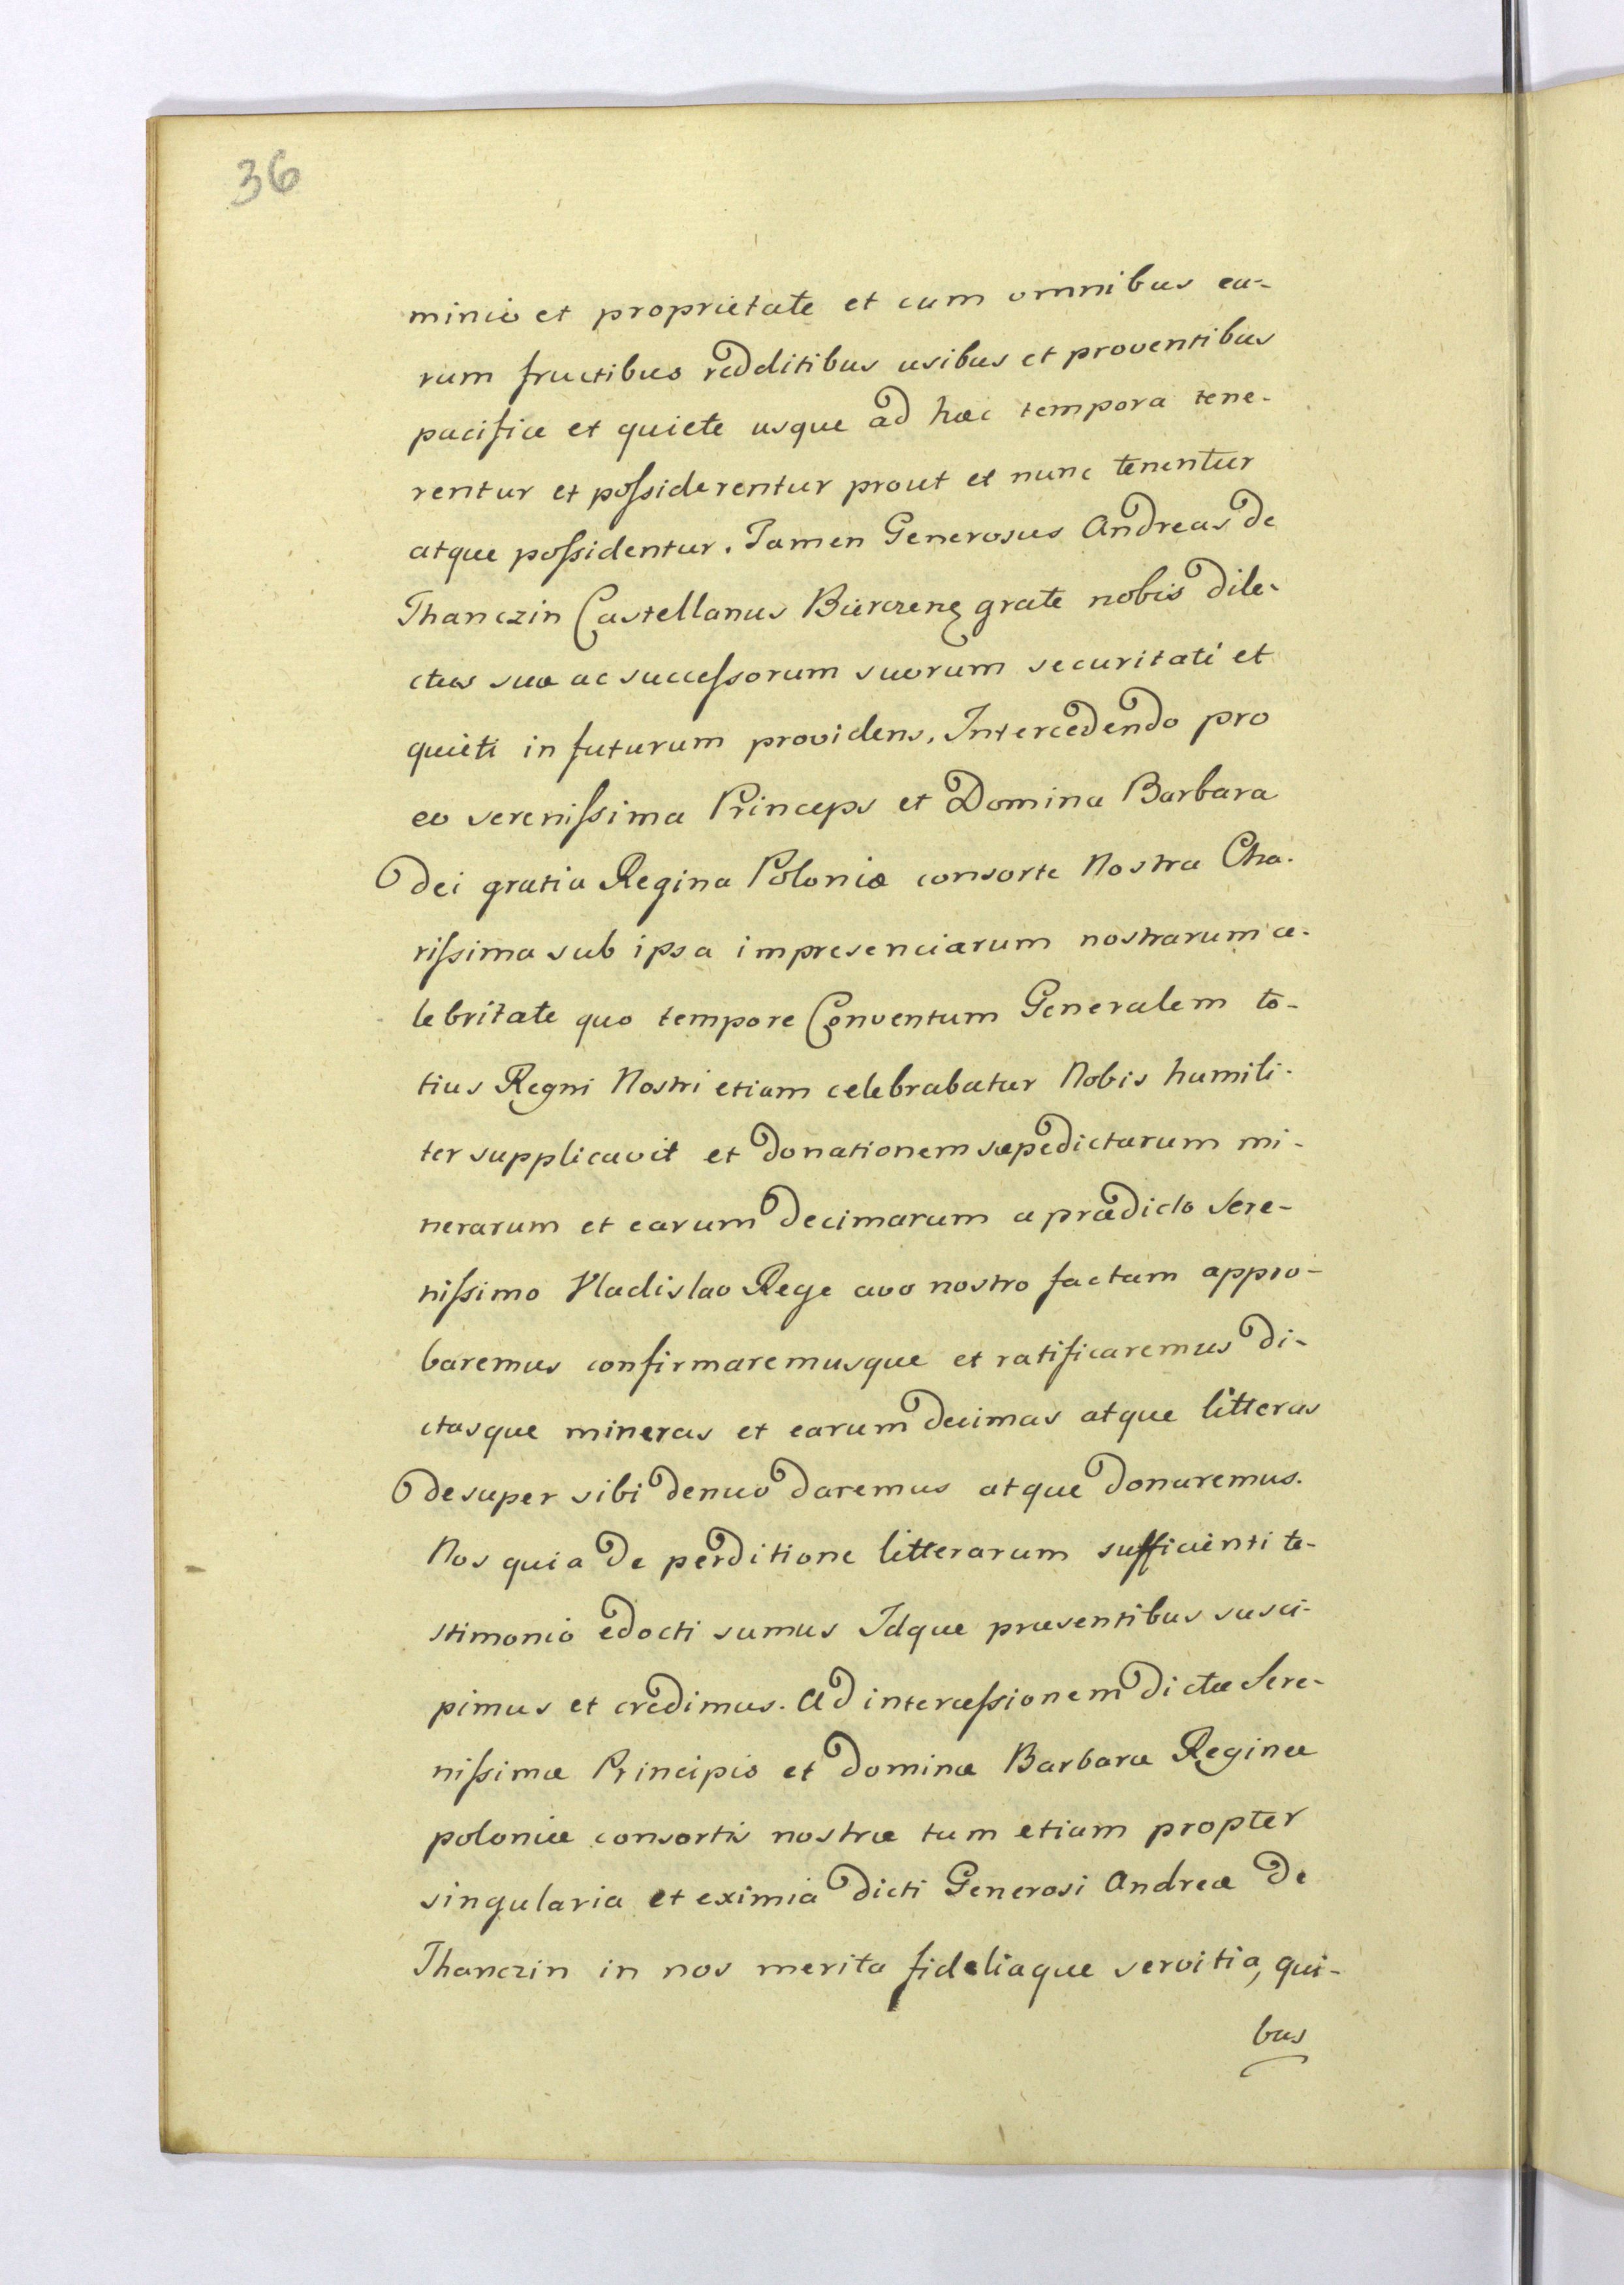 36
minio et proprietate et cum omnibus ea-
rum fructibus redditibus usibus et proventibus
pacifice et quiete usque ad hæc tempora tene-
rentur et poſsiderentur prout et nunc tenentur
atque poſsidentur. Tamen Generosus Andreas de
Thanczin Castellanus Bieczenę grate nobis dile-
ctus suæ ac succeſsorum suorum securitati et
quieti in futurum providens, Intercedendo pro
eo sereniſsima Princeps et Domina Barbara
Dei gratia Regina Poloniæ consorte Nostra Cha-
riſsima sub ipsa impresenciarum nostrarum ce-
lebritate quo tempore Conventum Generalem to-
tius Regni Nostri etiam celebrabatur Nobis humili-
ter supplicavit et donationem sæpedictarum mi-
nerarum et earum decimarum a prædicto Sere-
niſsimo Vladislao Rege avo nostro factam appro-
baremus confirmaremusque et ratificaremus di-
ctasque mineras et earum decimas atque litteras
desuper sibi denuo daremus atque donaremus.
Nos quia de perditione litterarum sufficienti te-
stimonio edocti sumus Idque præsentibus susci-
pimus et credimus. Ad interceſsionem dictæ Sere-
niſsimæ Principis et Dominæ Barbaræ Reginæ
poloniæ consortis nostræ tum etiam propter
singularia et eximia dicti Generosi Andreæ de
Thanczin in nos merita fideliaque servitia, qui-
bus